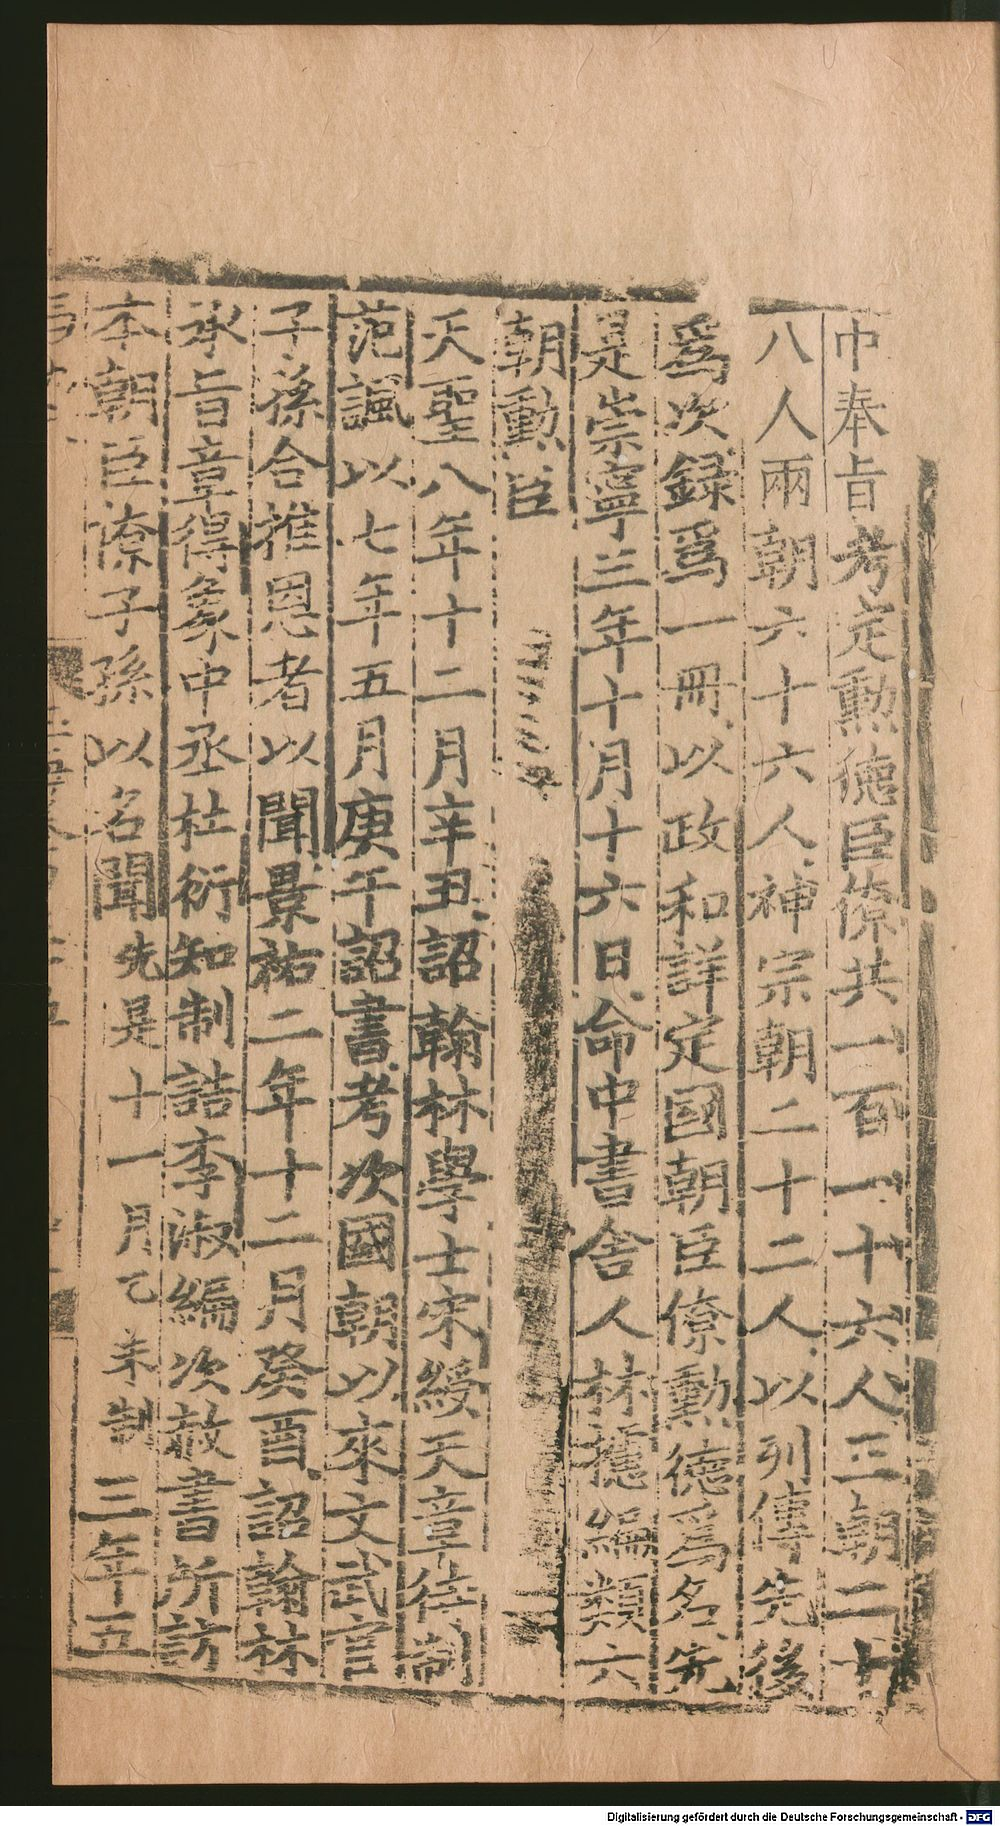 中奉旨考定勲德臣僚共一百一十六人三朝二十
八人兩朝六十六人神宗朝二十二人以列傳先後
爲次録爲一冊以政和詳定國朝臣僚勲德爲名先
是崇寧三年十月十六日命中書舍人林攄編類六
朝勲臣
天聖八年十二月辛丑詔翰林學士宋綬天章待制
范諷以七年五月庚午詔書考次國朝以來文武官
子孫合推恩者以聞景祐二年十二月癸酉詔翰林
承旨章得象中丞杜衍知制誥李淑編次赦書所訪
本朝臣僚子孫以名聞先是十一月乙未制三年五
Digitalisierung gefördert durch die Deutsche Forschungsgemeinschaft - DFG